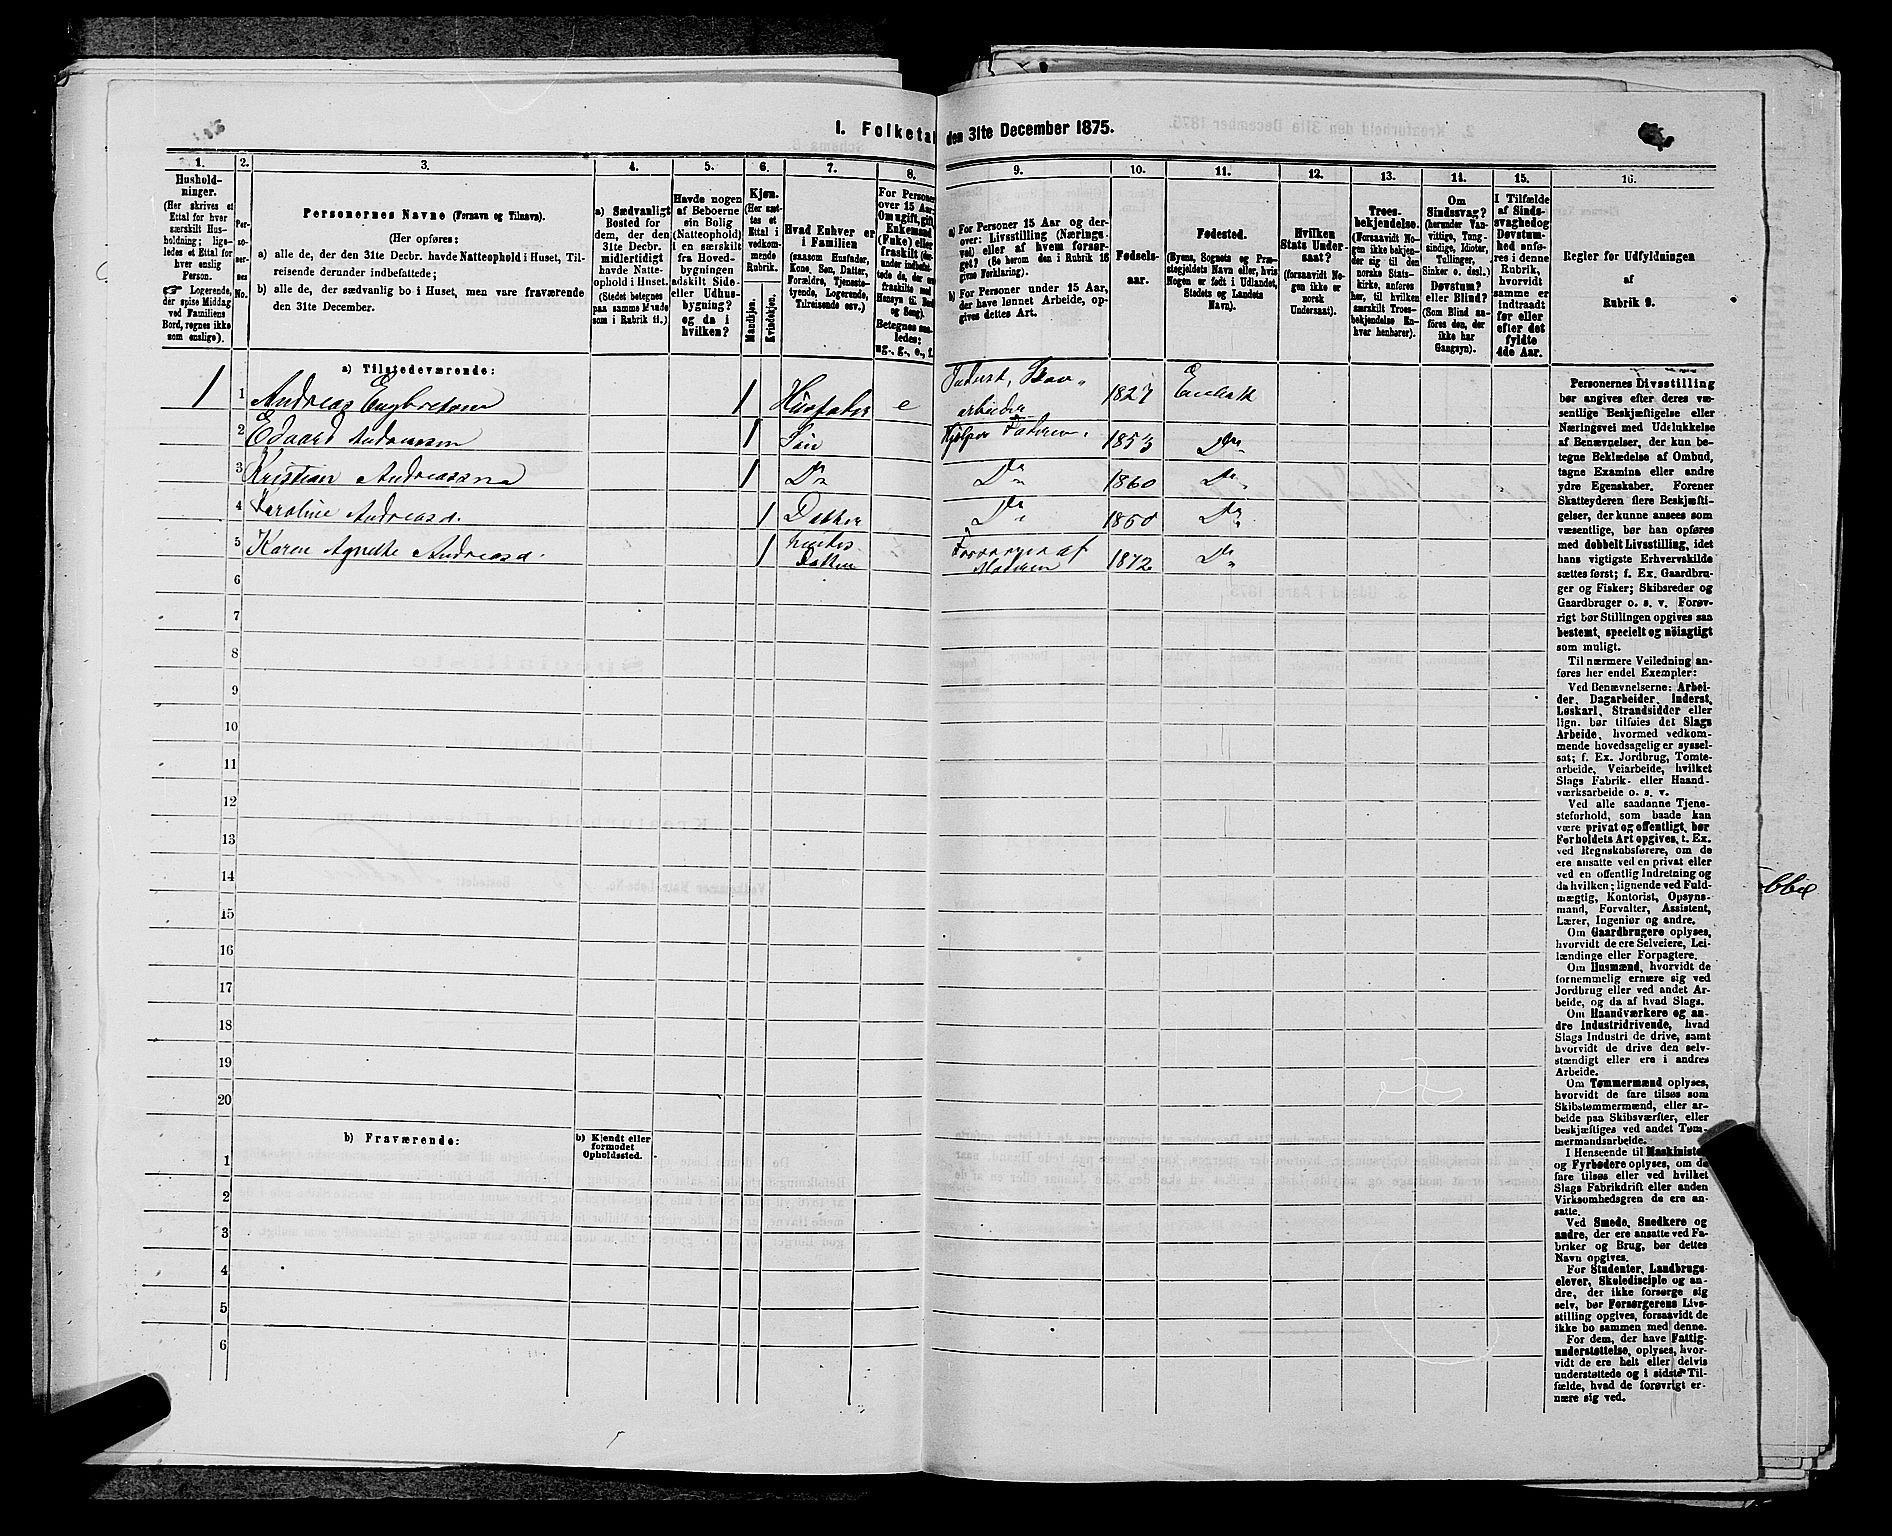 I. Folketal den 31te December 1875.
1.
Husholdninger.
(Her skrives et
Ettal for hver
særskilt Husholdning;
ligeledes et Ettal for
hver enslig
Person.
Logerende,
der spise Middag
ved Familiens
Bord, regnes ikke
som enslige).
2.
Personernes No.
3.
Personernes Navne (Fornavn og Tilnavn).
(Her opføres:
a) alle de, der den 31te Decbr. havde Natteophold i Huset, Tilreisende derunder indbefattede;
b) alle de, der sædvanlig bo i Huset, men vare fraværende
den 31te December.
4.
a) Sædvanligt
Bosted for
dem, der den
31te Decbr.
midlertidigt
havde Natteophold i Huset.
(Stedet betegnes
paa samme Maade
som i Rubrik 11.)
5.
Havde nogen
af Beboerne
sin Bolig
(Natteophold)
i en særskilt
fra Hovedbygningen
adskilt Side-
eller Udhusbygning?
og da i
hvilken?
6.
Kjøn.
(Her sættes et
Ettal i
vedkommende
Rubrik.
Mandkjøn.
Kvindekjøn.
7.
Hvad Enhver er
i Familien
(saasom Husfader,
Kone, Søn, Datter,
Forældre, Tjenestetyende, Logerende,
Tilreisende osv.)
8.
For Personer
over 15 Aar:
Om ugift, gift,
Enkemand
(Enke) eller
fraskilt
Betegnes saaledes:
ug., g., e., f.
9.
a) For Personer 15 Aar og derover: Livsstilling (Næringsvei) eller af hvem forsørget? (Se herom den i Rubrik 16
givne Forklaring).
b) For Personer under 15 Aar,
der have lønnet Arbeide, opgives dettes Art.
10.
Fødselsaar.
11.
Fødested.
(Byens, Sognets og Præstegjeldets Navn eller, hvis
Nogen er født i Udlandet,
Stedets og Landets
Navn).
12.
Hvilken
Stats Undersaat?
(forsaavidt Nogen ikke er
norsk
Undersaat).
13.
Troesbekjendelse.
(Forsaavidt Nogen ikke bekjender sig til den
norske Statskirke, anføres
her, til hvilken
særskilt Troesbekjendelse Enhver henhører).
14.
Om
Sindssvag?
(herunder Vanvittige, Tungsindige, Idioter,
Tullinger,
Sinker o. desl.)
Døvstum?
eller Blind?
(Som Blind anføres den, der
ikke har
Gangsyn).
15.
I Tilfælde
af Sindssvaghed og
Døvstumhed anføres i denne
Rubrik,
hvorvidt
samme er
indtraadt
før eller
efter det
fyldte
4de Aar.
16.
Regler for Udfyldningen
af
Rubrik 9.
a) Tilstedeværende:
1 1 Andreas Engbretsen 1 Husfader e Inderst, Skovarbeider 1827 Enebak
2 Edvard Andreassen 1 Søn Hjelper Faderen 1853 Do
3 Kristian Andreassen 1 Do Do 1860 Do
4 Karoline Andreasd. 1 Datter Do 1850 Do
5 Karen Agnette Andreasd. 1 Datter Forsørges af Moderen 1872 Do
6
7
8
9
10
11
12
13
14
15
16
17
18
19
20
b) Fraværende:
b) Kjendt eller
formodet
Opholdssted.
1
2
3
4
5
6
Personernes Livsstilling
bør angives efter deres væsentlige Beskjæftigelse eller
Næringsvei med Udelukkelse
af Benævnelser, der kun betegne Beklædelse af Ombud,
tagne Examina eller andre
ydre Egenskaber. Forener
Skatteyderen flere Beskjæftigelser, der kunne ansees som
væsentlige, bør han opføres
med dobbelt Livsstilling, idet
hans vigtigste Erhvervskilde
sættes først; f. Ex. Gaardbruger og Fisker; Skibsreder og
Gaardbruger o. s. v. Forøvrigt bør Stillingen opgives saa
bestemt, specielt og nøiagtigt
som muligt.
Til nærmere Veiledning anføres her endel Exempler:
Ved Benævnelserne: Arbeider, Dagarbeider, Inderst,
Løskarl, Strandsidder eller
lign. bør tilføies det Slags
Arbeide, hvormed vedkommende hovedsagelig er sysselsat; f. Ex. Jordbrug, Tomtearbeide, Veiarbeide, hvilket
Slags Fabrik- eller Haandværksarbeide o. s. v.
Ved alle saadanne Tjenesteforhold, som baade kan
være privat og offentligt, bør
Forholdets Art opgives, t. Ex.
ved Regnskabsførere, om de
ere ansatte ved en privat eller
ved en offentlig Indretning og
da hvilken; lignende ved Fuldmægtig, Kontorist, Opsynsmand, Forvalter, Assistent,
Lærer, Ingeniør og andre.
Om Gaardbrugere oplyses,
hvorvidt de ere Selveiere, Leilændinge eller Forpagtere.
Om Husmænd, hvorvidt de
fornemmelig ernære sig ved
Jordbrug eller ved andet Arbeide, og da af hvad Slags.
Om Haandværkere og andre Industridrivende, hvad
Slags Industri de drive, samt
hvorvidt de drive den selvstændigt eller ere i andres
Arbeide.
Om Tømmermænd oplyses,
hvorvidt de fare tilsøs som
Skibstømmermænd, eller arbeide paa Skibsværfter, eller
beskjæftiges ved andet Tømmermandsarbeide.
I Henseende til Maskinister
og Fyrbødere oplyses, om de
fare tilsøs eller ved hvilket
Slags Fabrikdrift eller anden
Virksomhedsgren de ere ansatte.
Ved Smede, Snedkere og
andre, der ere ansatte ved Fabriker og Brug, bør dettes
Navn opgives.
For Studenter, Landbrugselever, Skoledisciple og andre, der ikke forsørge sig
selv, bør Forsørgerens Livsstilling opgives, forsaavidt de
ikke bo sammen med denne.
For dem, der have Fattigunderstøttelse, oplyses, hvorvidt de ere helt eller delvis
understøttede og i sidste Tilfælde, hvad de forøvrigt ernære sig ved.